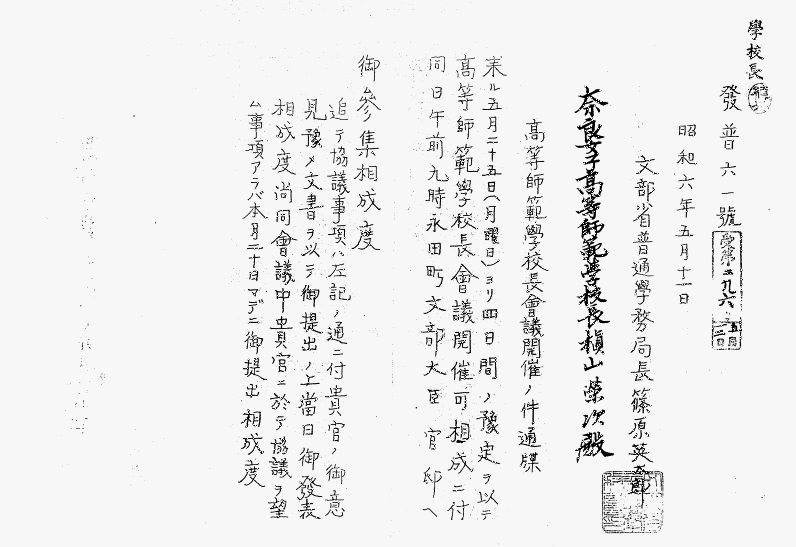 學校長
發普六一號
受第二九六 五月一二日
昭和六年五月十一日
文部省普通學務局長篠原英太郎
奈良女子高等師範學校長槇山榮次殿
高等師範學校長會議開催ノ件通牒
來ル五月二十五日(月曜日)ヨリ四日間ノ豫定ヲ以テ
高等師範學校長會議開催可相成ニ付
同日午前九時永田町文部大臣官邸ヘ
御參集相成度
追テ協議事項ハ左記ノ通ニ付貴官ノ御意
見豫メ文書ヲ以テ御提出ノ上當日御發表
相成度尚同會議中貴官ニ於テ協議ヲ望
ム事項アラバ本月二十日マデニ御提出相成度